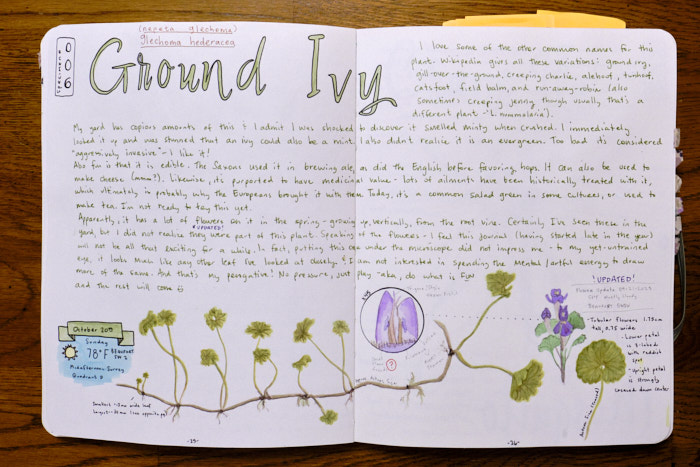 (nepeta glechoma)
glechoma hederacea
SPECIMEN #
006
Ground Ivy
I love some of the other common names for this
plant. Wikipedia gives all these variations: ground ivy,
gill-over-the-ground, creeping charlie, alehoof, tunhoof,
catsfoot, field balm, and run-away-robin (also
sometimes creeping jenny though usually that's a
different plant - L. nummularia).
My yard has copious amounts of this & I admit I was shocked to discover it smelled minty when crushed. I immediately
looked it up and was stunned that an ivy could also be a mint. I also didn't realize it is an evergreen. Too bad it's considered
"aggressively invasive" - I like it!
Also fun is that it is edible. The Saxons used it in brewing ale, as did the English before favoring hops. It can also be used to
make cheese (mmm?). Likewise, it's purported to have medicinal value - lots of ailments have been historically treated with it,
which ultimately is probably why the Europeans brought it with them. Today, it's a common salad green in some cultures, or used to
make tea. I'm not ready to try this yet.
Apparently, it has a lot of flowers on it in the spring - growing up, vertically, from the root vine. Certainly I've seen these in the
yard, but I did not realize they were part of this plant. Speaking of the flowers - I feel this journal (having started late in the year)
*UPDATED!
will not be all that exciting for a while. In fact, putting this one under the microscope did not impress me - to my yet-untrained
eye, it looks much like any other leaf I've looked at closely. & I am not interested in spending the mental/artful energy to draw
more of the same. And that's my perogative! No pressure, just play "aka, do what is Fun
and the rest will come
!UPDATED!
October 2019
Sunday
78°F
Midafternoon Sunny
Quadrant
Tubular flowers 1.75cm
tall, 0.75 wide
- Lower petal
is
with reddish
spot
- Upright petal
is strongly
down center
?
Actual Size
-25-
-26-